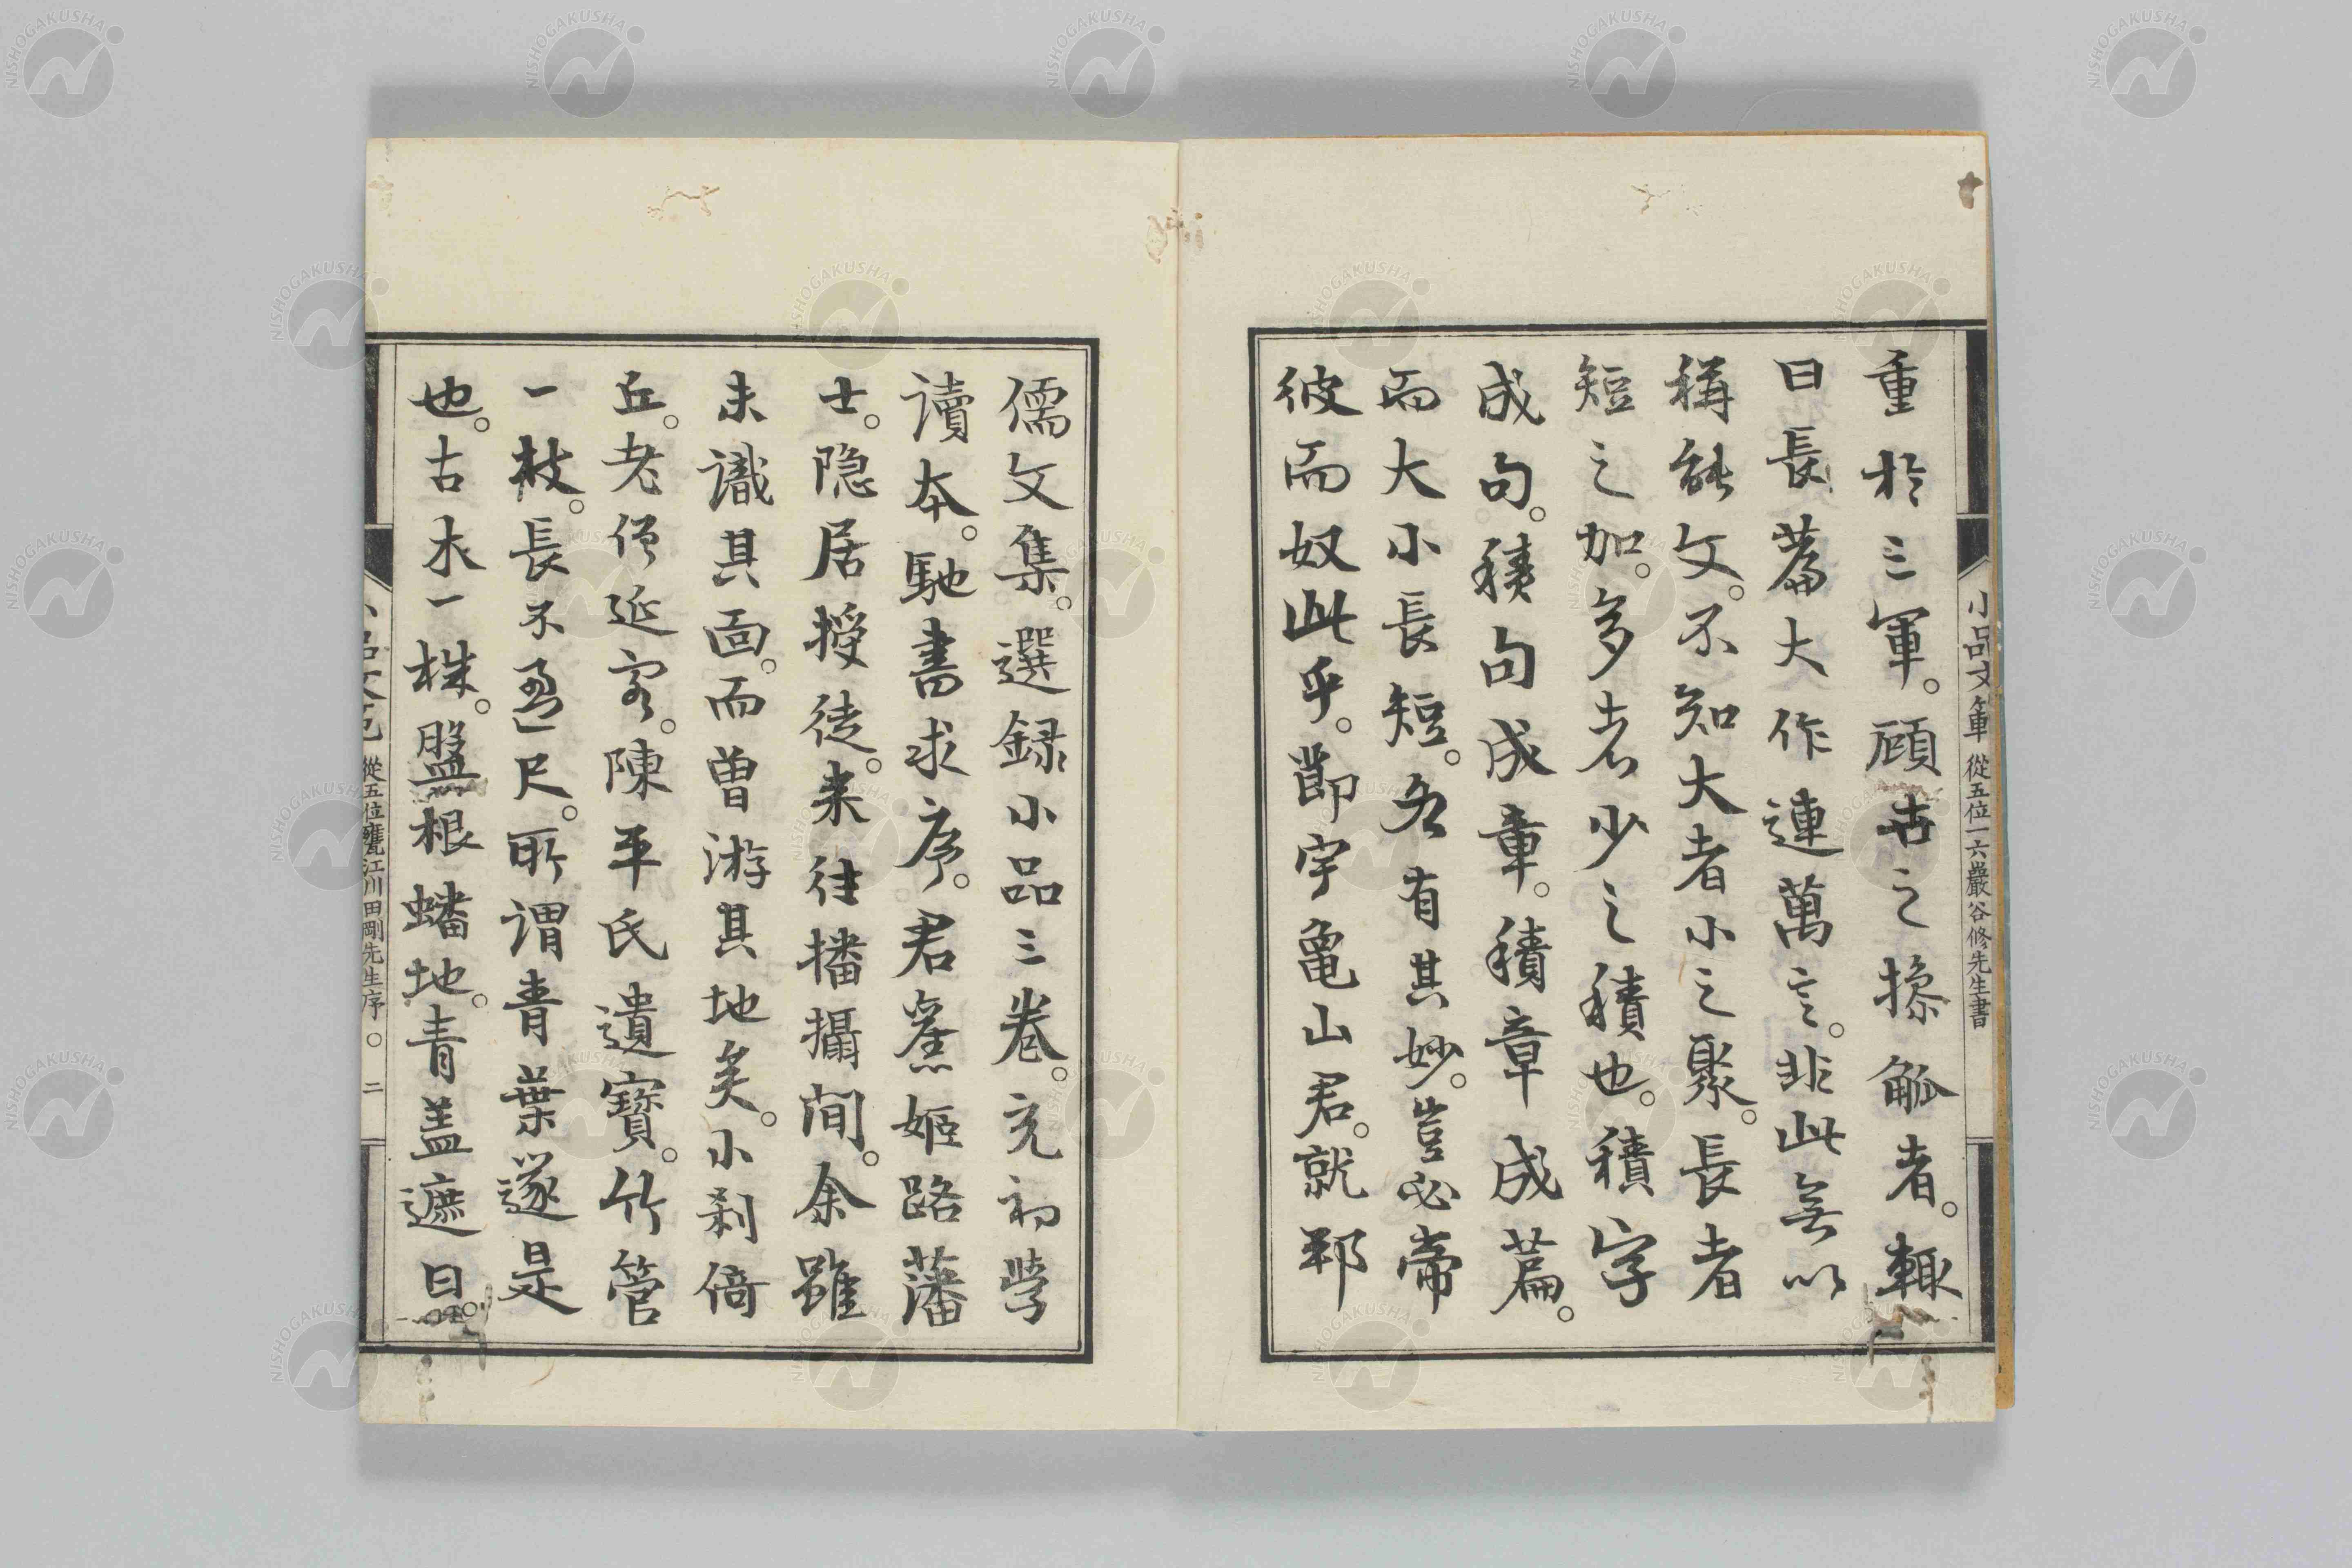 小品文範 從五位一六巖谷修先生書
重於三軍。顧世之操觚者。輙
曰長篇大作連萬言。非此無以
稱能文。不知大者小之聚。長者
短之加。多者少之積也。積字
成句。積句成章。積章成篇。
而大小長短。各有其妙。豈必帝
彼而奴此乎。節宇亀山君。就邦
儒文集。選録小品三卷。充初学
讀本。馳書求序。君産姬路藩
士。隐居授徒。来往播攝間。余雖
未識其面。而曽游其地矣。小刹倚
丘。老僧延客。陳平氏遺寶。竹管
一枝。長不盈尺。所謂青葉遂是
也。古木一株。盤根蟠地。青盖遮日
從五位甕江川田剛先生序 ○ 二
NISHOGAKUSHA